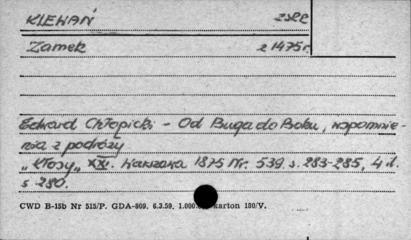 KLEWAŃ ZSRR
Zamek z 1475 r
Edward Chłopicki - Od Buga do Boku, wspomnie-
nia z podróży
"Kłosy" XXI. Warszawa 1875 Nr. 539. s. 283-285, 4 il.
s 280.
CWD B-15b Nr 515/P. GDA-809. 6.3.59. 1.000. karton 180/V.